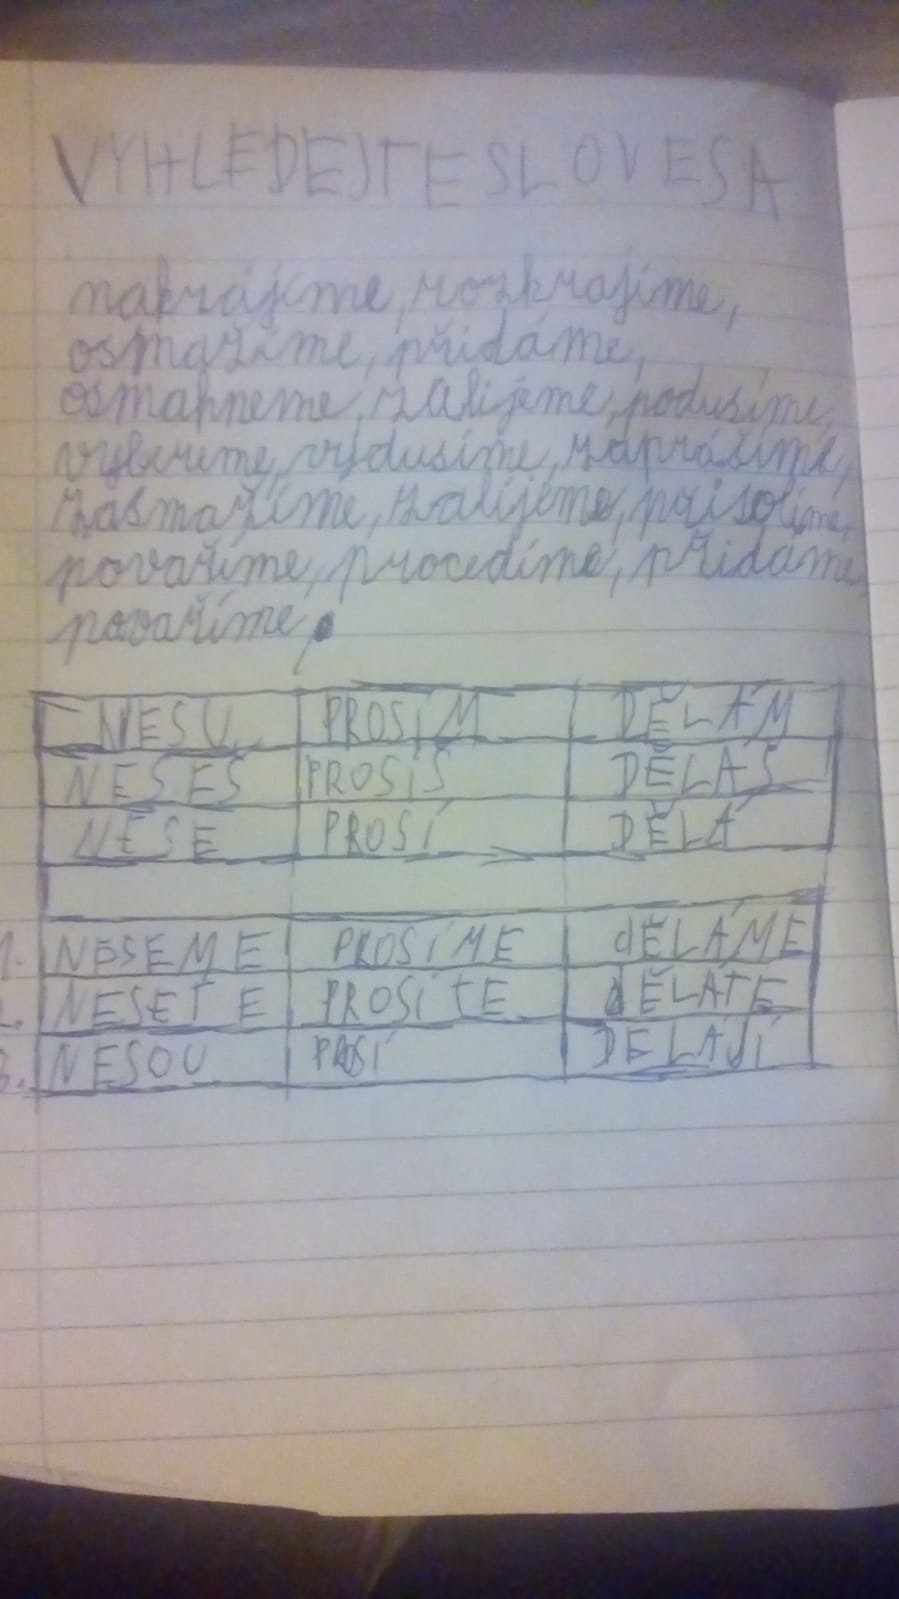 VYHLEDEJTE SLOVESA
nakrájíme, rozkrajíme,
osmažíme, přidáme,
osmahneme, zalijeme, podusíme,
vybereme, vydusíme, zaprášíme,
zasmažíme, zalijeme, přisolíme,
povaříme, procedíme, přidáme,
povaříme,
NESU PROSÍM DĚLÁM
NESEŠ PROSÍŠ DĚLÁŠ
NESE PROSÍ DĚLÁ
1. NESEME PROSÍME dĚLÁME
2. NESETE PROSÍTE dĚLÁTE
3. NESOU PROSÍ DĚLAJÍ